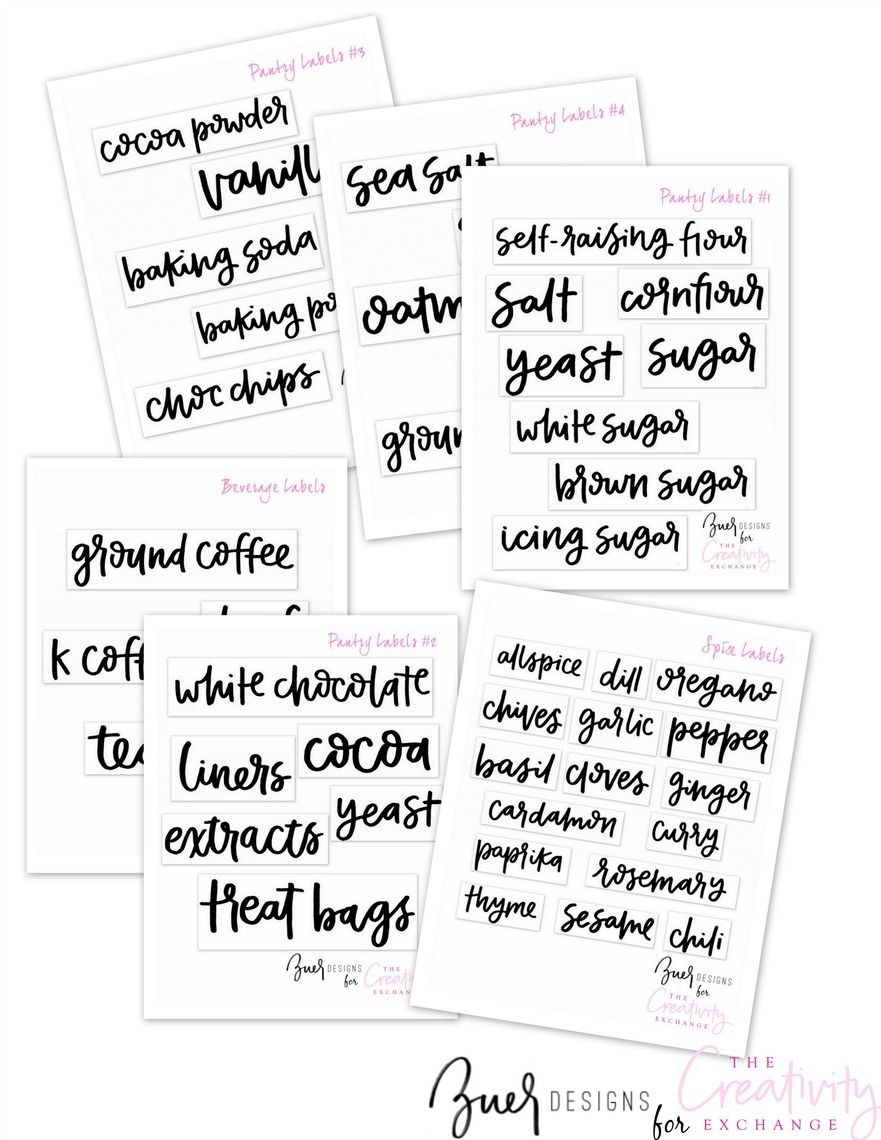 Pantry Labels #3
cocoa powder
vanill
baking soda
baking po
choc chips
Pantry Labels #4
sea salt
oatm
groun
Pantry Labels #1
self-raising flour
salt cornflour
yeast sugar
white sugar
brown sugar
icing sugar
Zuer DESIGNS
for
THE
Creativity
EXCHANGE
Beverage Labels
ground coffee
k coff
tea
Pantry Labels #2
white chocolate
liners cocoa
extracts yeast
treat bags
Zuer DESIGNS
for
THE
Creativity
EXCHANGE
Spice Labels
allspice dill oregano
chives garlic pepper
basil cloves ginger
cardamon curry
paprika rosemary
thyme sesame chili
Zuer DESIGNS
for
THE
Creativity
EXCHANGE
Zuer DESIGNS
for
THE
Creativity
EXCHANGE